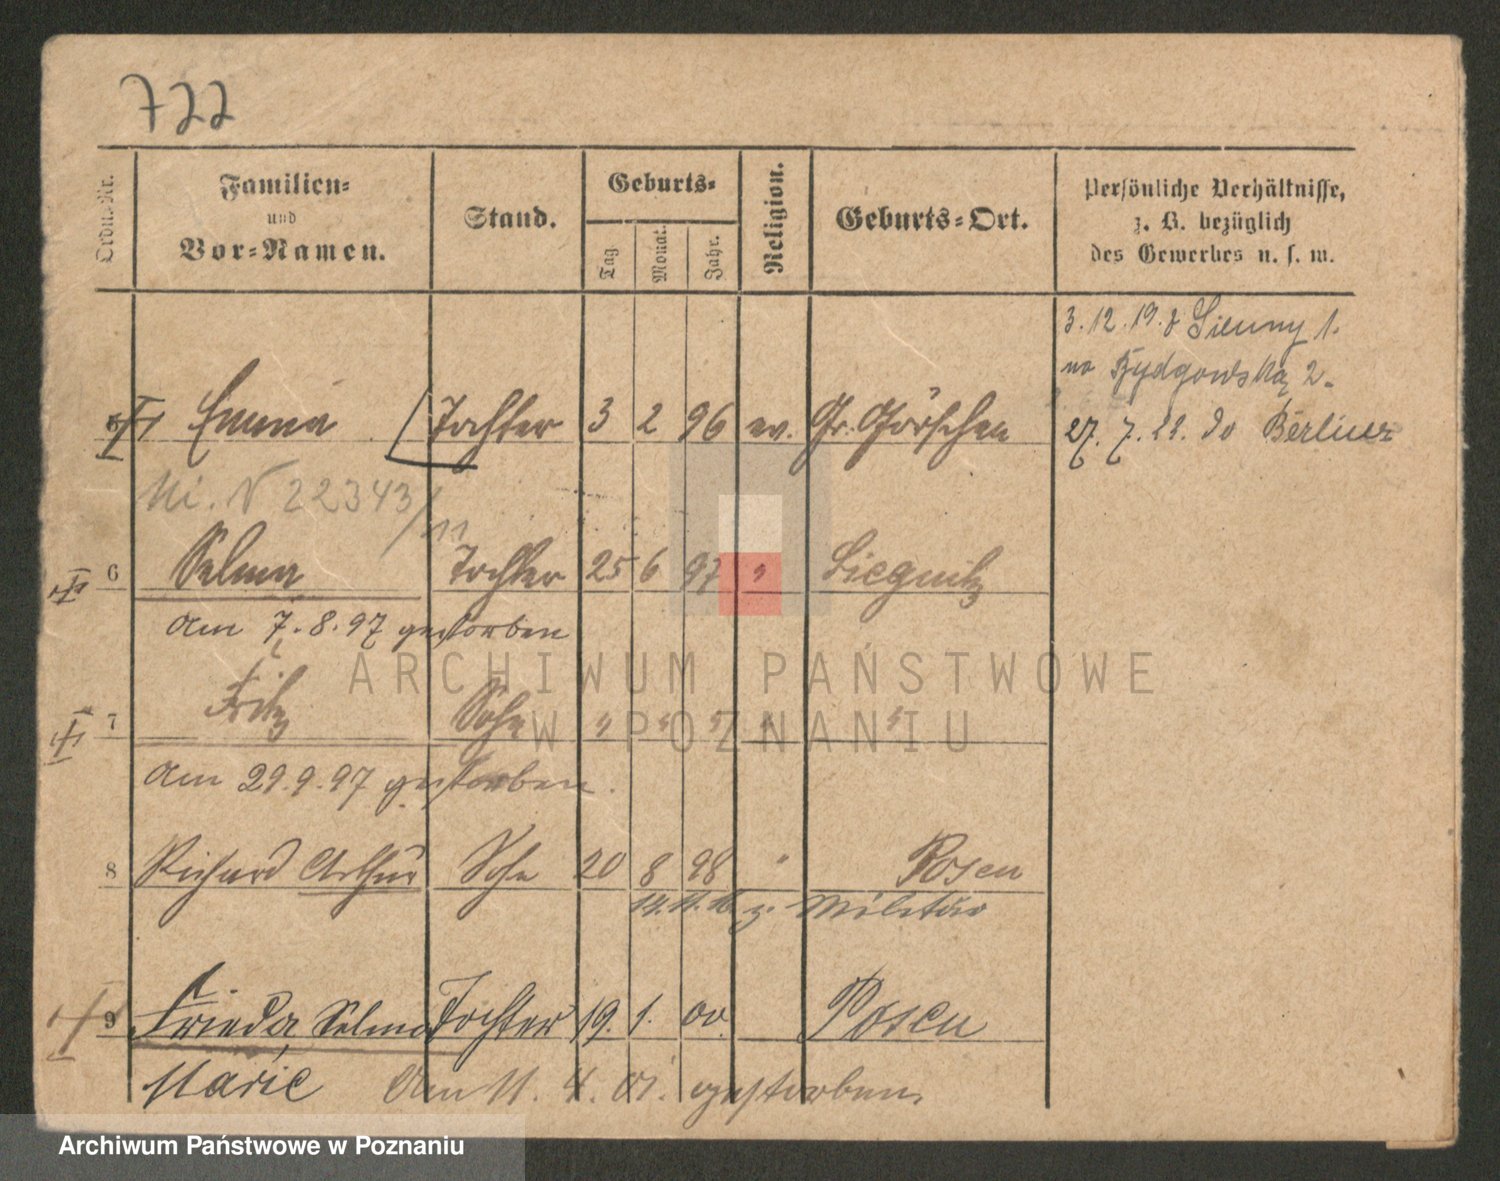 722
Ordn.-Nr.
Familien-
und
Vor-Namen.
Stand.
Geburts-
Tag
Monat.
Jahr.
Religion.
Geburts-Ort.
Persönliche Verhältnisse,
z. B. bezüglich
des Gewerbes u. s. w.
3. 12. 19. z Sienny 1.
na Bydgowską 2.
5 Emma Tochter 3 2 96 ev. Gr. Görschen
27. 7. 21. do Berliner
N 22343/11
6 Selma Tochter 25 6 97 " Liegnitz
Am 7. 8. 97 gestorben
7 Fritz Sohn " " " " "
Am 29. 9. 97 gestorben.
8 Richard Arthur Sohn 20 8 98 " Posen
14. 11. 16 z. Militär
9 Frieda Selma Tochter 19. 1. 00. Posen
Marie Am 11. 4. 01. gestorben.
ARCHIWUM PAŃSTWOWE
W POZNANIU
Archiwum Państwowe w Poznaniu